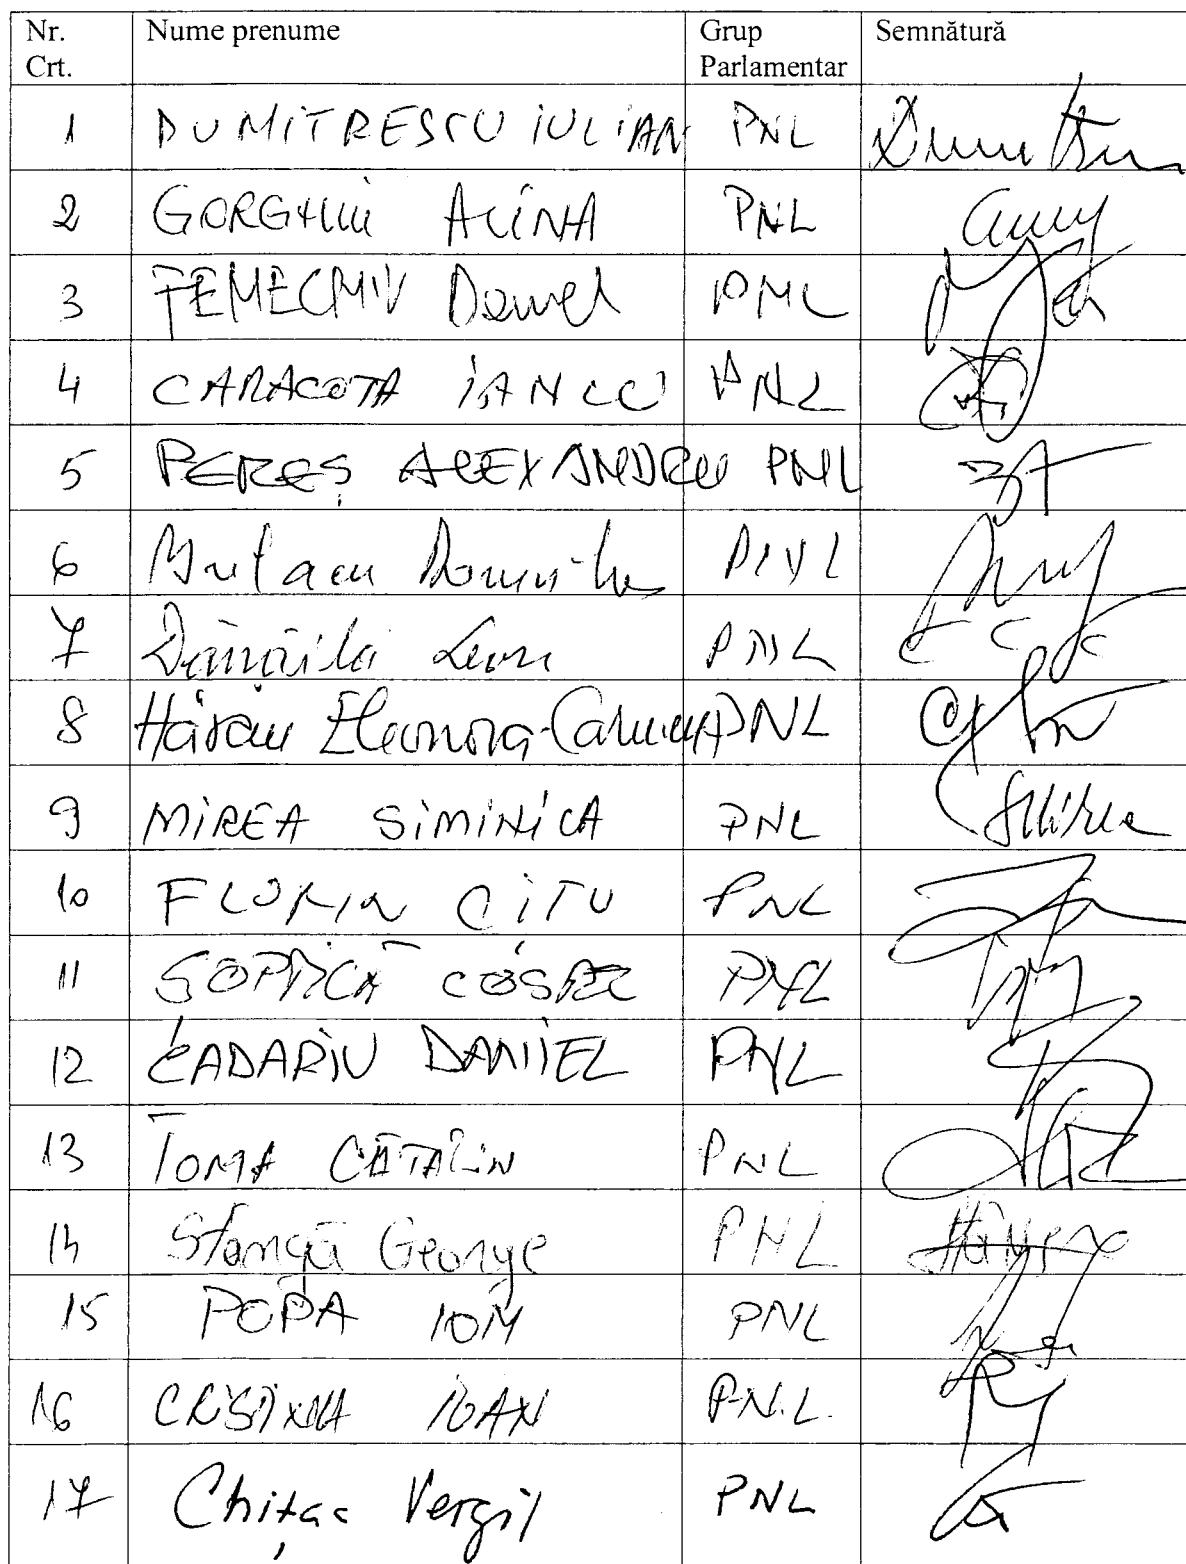 Nr. Crt. Nume prenume Grup Parlamentar Semnătură
1 DUMITRESCU IULIAN PNL
2 GORGHIU ALINA PNL
3 FENECHIU Daniel PNL
4 CARACOTA IANCU PNL
5 PEREȘ ALEXANDRU PNL
6 PNL
7 Dănăilă Leon PNL
8 Hărău Eleonora-Carmen PNL
9 MIREA SIMINICA PNL SMirea
10 FLORIN CITU PNL
11 ȘOPTICĂ COSTEL PNL
12 CADARIU DANIEL PNL
13 TOMA CĂTĂLIN PNL
14 Stângă George PNL
15 POPA ION PNL
16 CRISTINA IOAN P.N.L.
17 Chițac Vergil PNL